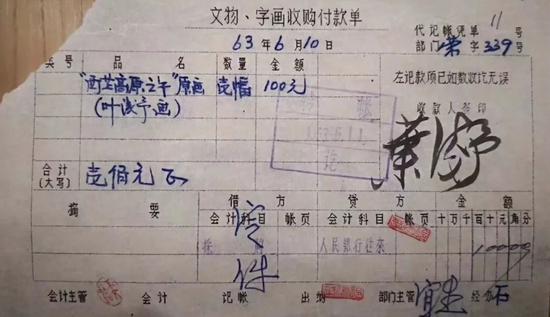 文物、字画收购付款单
代记帐凭单 11 号
63年6月10日
部门 荣 字 339 号
类号 品名 数量 金额
"西芒高原之午"原画 壱幅 100元
(叶浅予画)
左记款项已如数收讫无误
收款人签印
叶浅予
合计(大写) 壱佰元正
摘要 借方 贷方 金额
会计科目 帐页 会计科目 帐页 十万千百十元角分
人民银行往来 10000
会计主管 会计 记帐 出纳 部门主管 经办